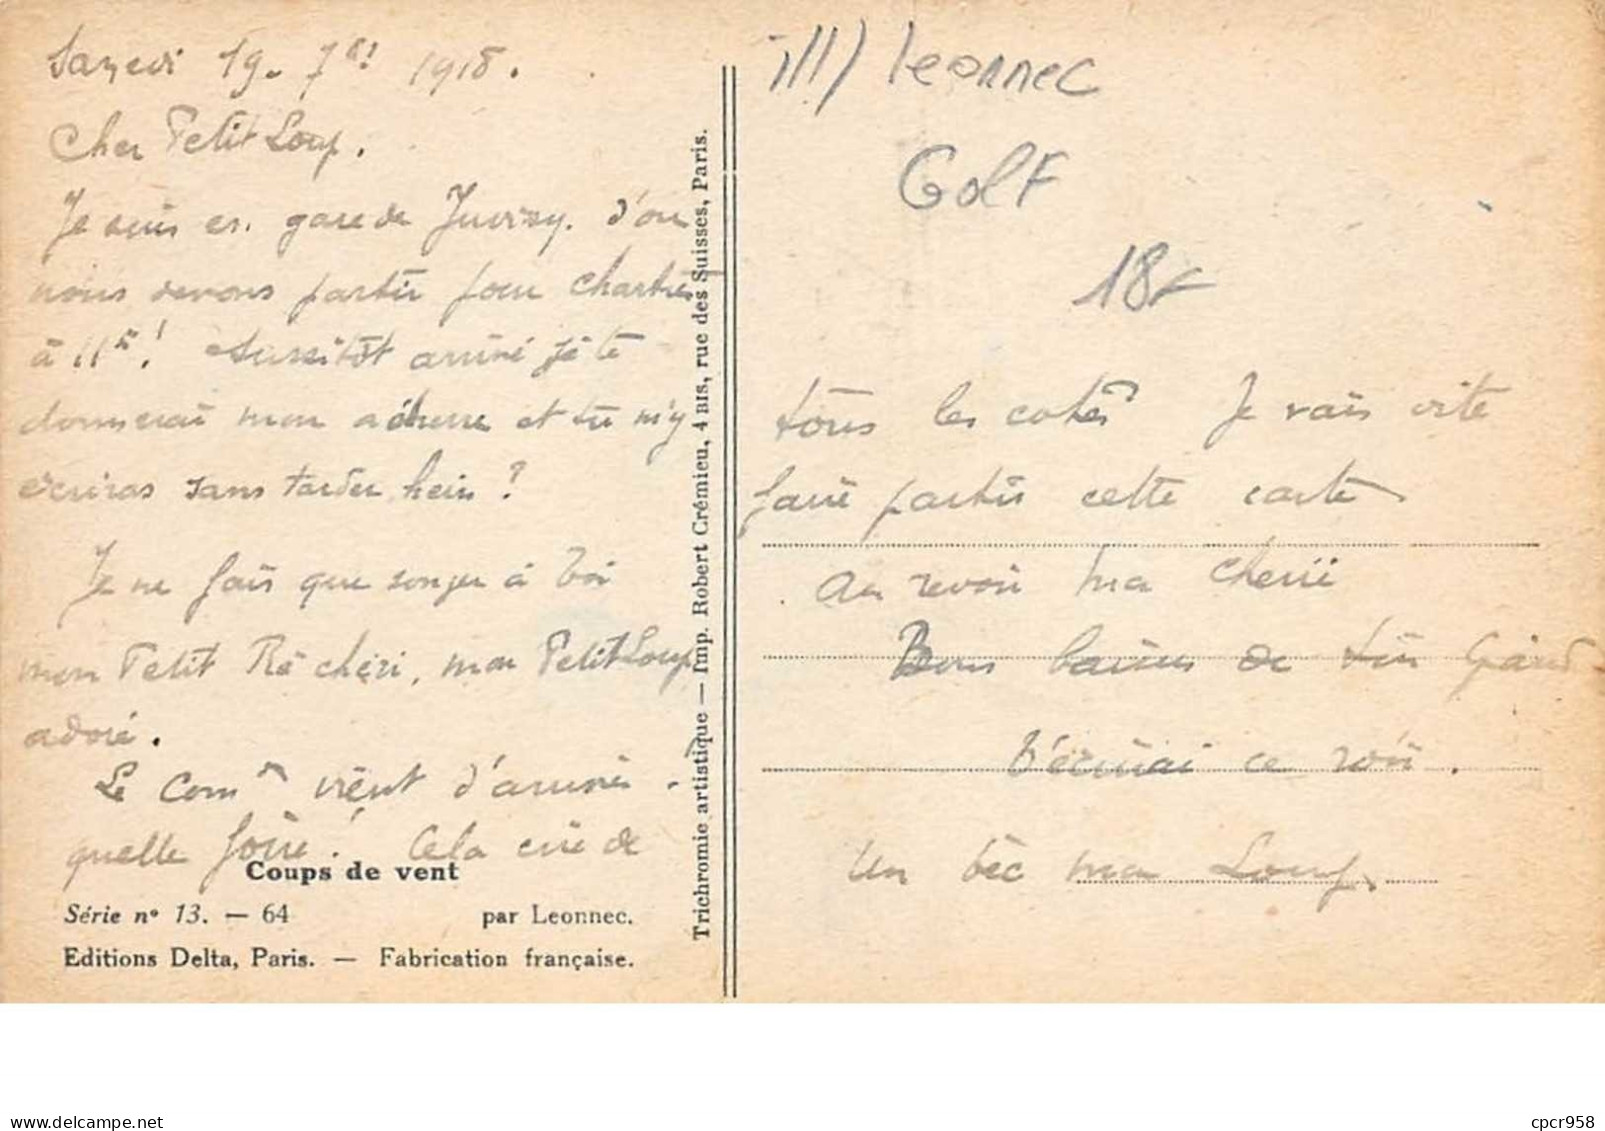 Samedi 19. 7bre 1918.
Cher Petit Loup.
Je suis en gare de Juvisy. d'ou
nous devons partir pour Chartres
à 11h! Aussitôt arrivé je te
donnerai mon adresse et tu m'y
écriras sans tarder hein?
Je ne fais que songer à toi
mon Petit Ré chéri, mon Petit Loup
adoré.
Le Comt vient d'arriver.
quelle foire! Cela crie de
Coups de vent
Série n° 13. — 64 par Leonnec.
Editions Delta, Paris. — Fabrication française.
Trichromie artistique — Imp. Robert Crémieu, 4 BIS, rue des Suisses, Paris.
ill) Leonnec
Golf
18
tous les cotés Je vais vite
faire partir cette carte
Au revoir ma Chérie
Bons baisers de ton Grand
t'écrirai ce soir.
Un bec mon Loup.
cpcr958